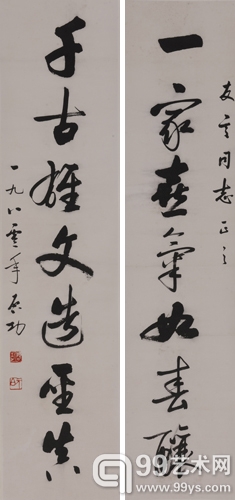 友同志正之
一家喜氣如春釀
千古雄文造聖真
一九八零年 启功
99艺术网
www.99ys.com